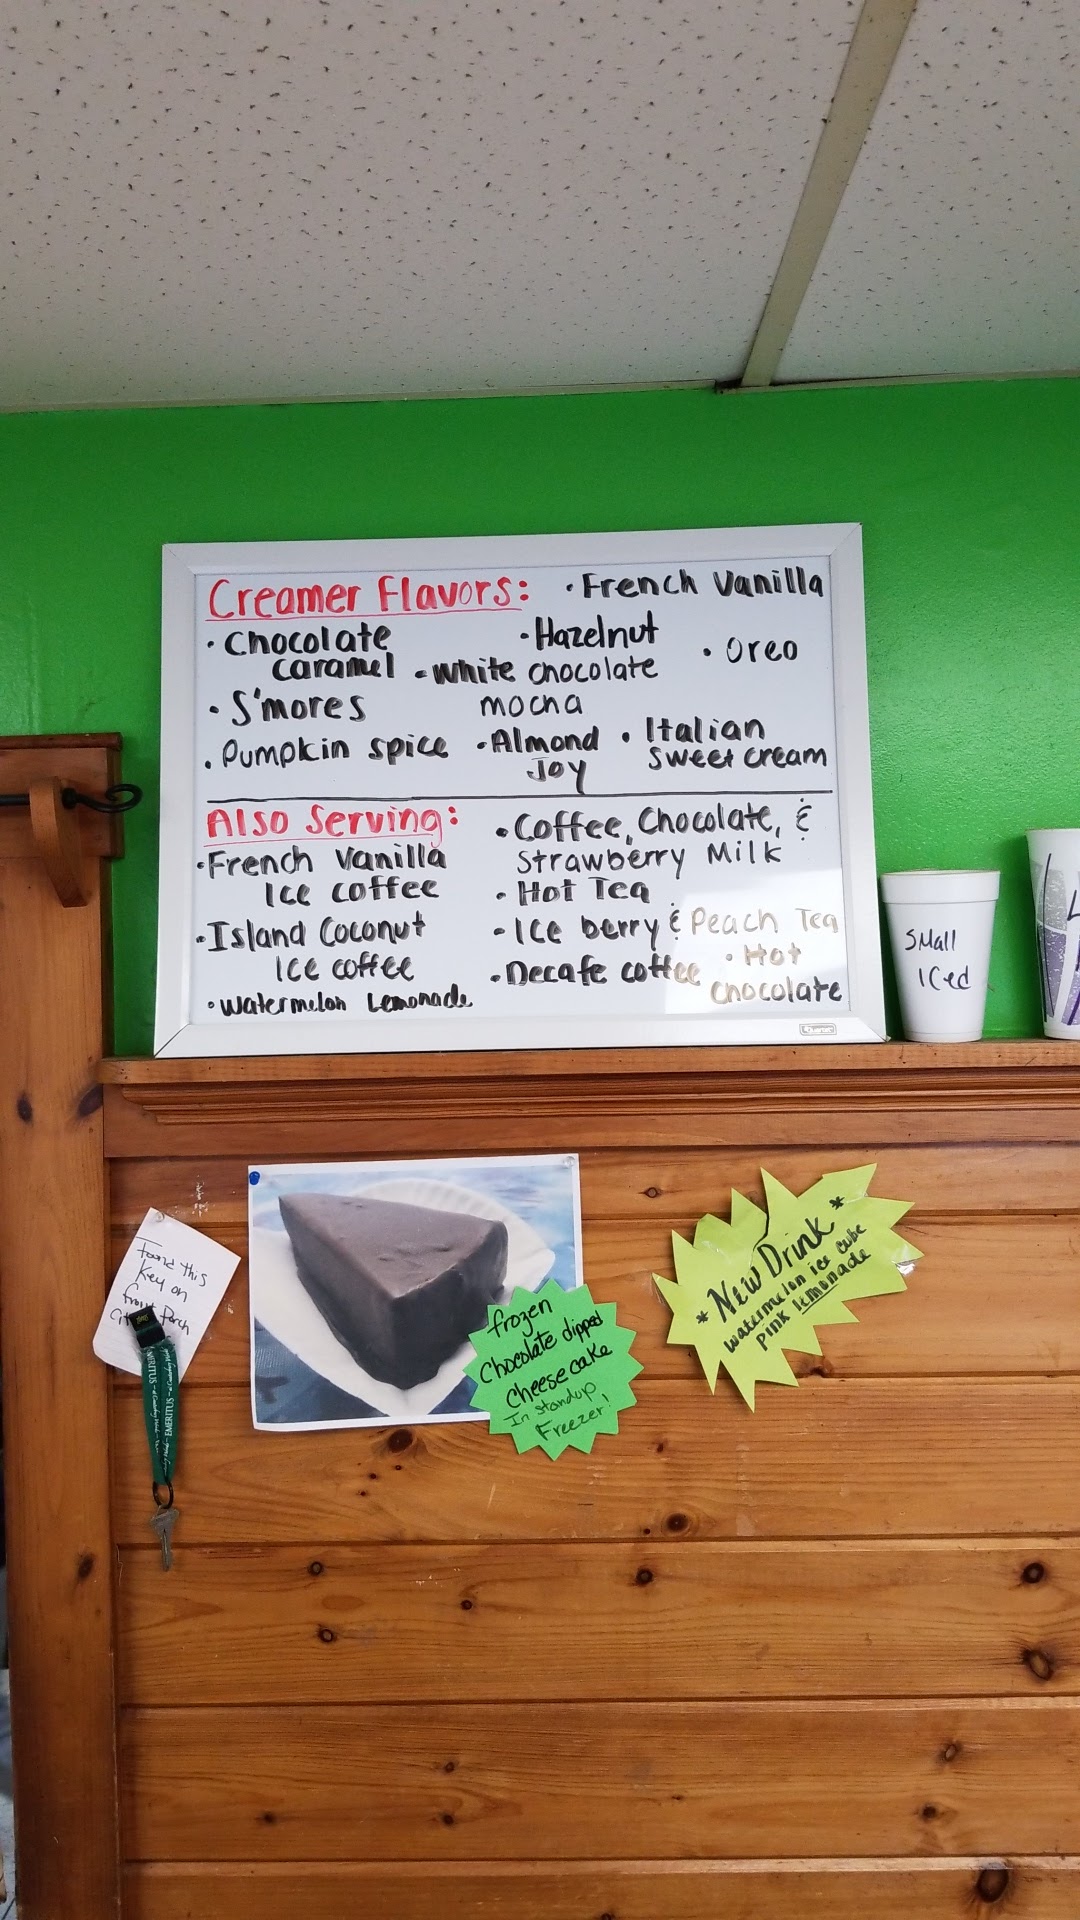 Creamer Flavors:
• French Vanilla
• Chocolate
caramel
• Hazelnut
• Oreo
• White chocolate
mocha
• S'mores
• Pumpkin spice
• Almond
Joy
• Italian
Sweet cream
Also Serving:
• French Vanilla
Ice coffee
• Island Coconut
Ice coffee
• Watermelon Lemonade
• Coffee, Chocolate, &
Strawberry Milk
• Hot Tea
• Ice berry & Peach Tea
• Decafe coffee
• Hot
chocolate
Small
Iced
L
Found this
key on
front Porch
EMERITUS
EMERITUS
frozen
Chocolate dipped
cheesecake
In standup
Freezer!
* New Drink *
watermelon ice cube
pink lemonade